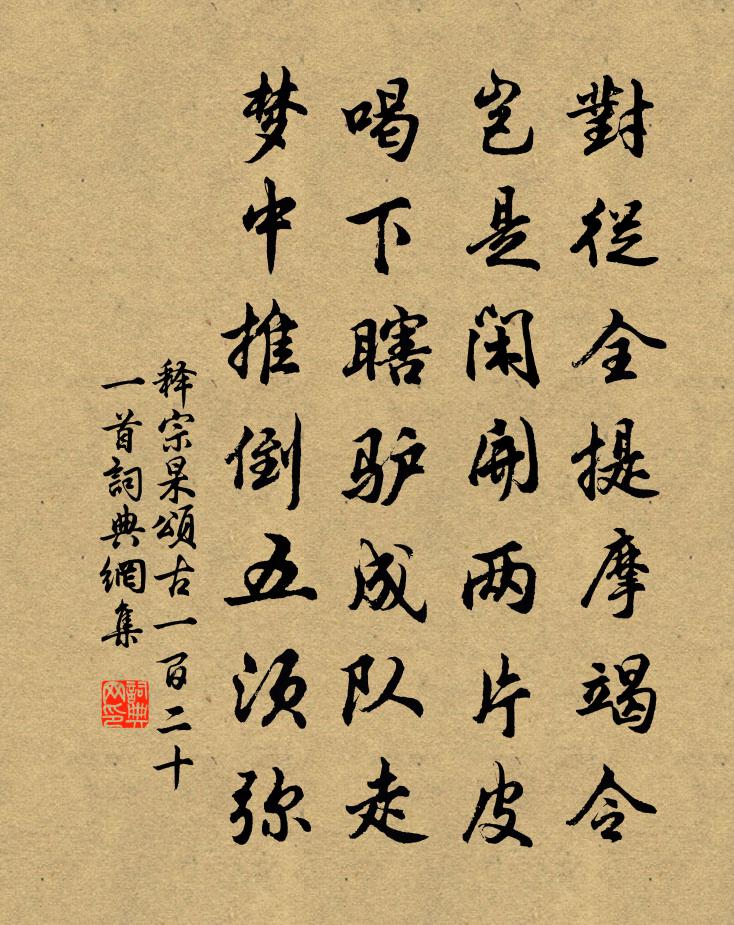 對從全提摩竭令
岂是闲開两片皮
喝下瞎驴成队走
梦中推倒五须弥
释宗杲頌古一百二十
一首詞典網集
詞典
网印